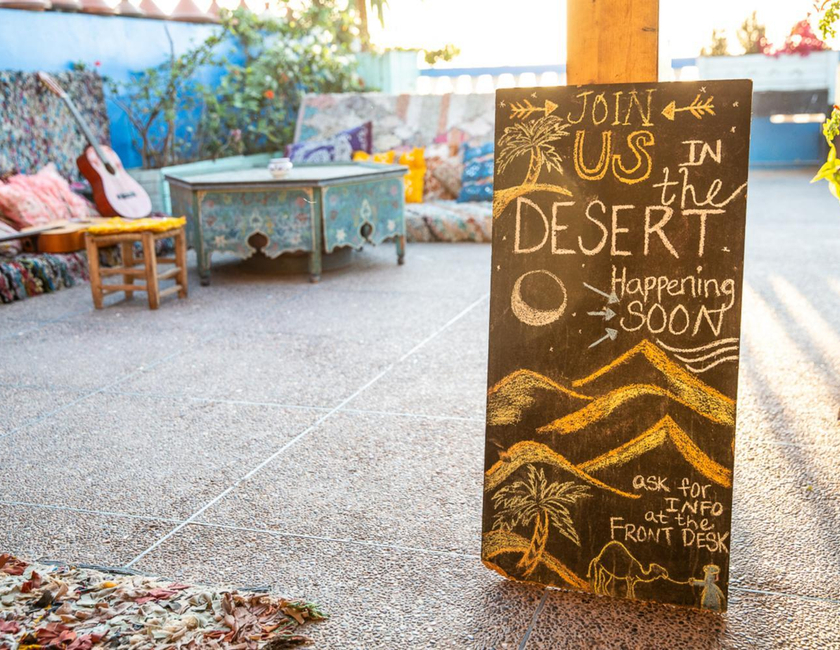 JOIN
US IN
the
DESERT
Happening
SOON
ask for
INFO
at the
FRONT DESK